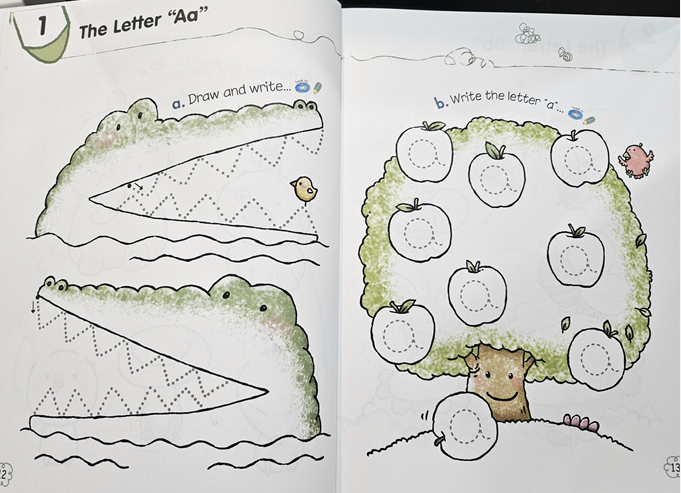 1
The Letter "Aa"
a. Draw and write...
b. Write the letter "a"...
a
a
a
a
a
a
a
a
a
13